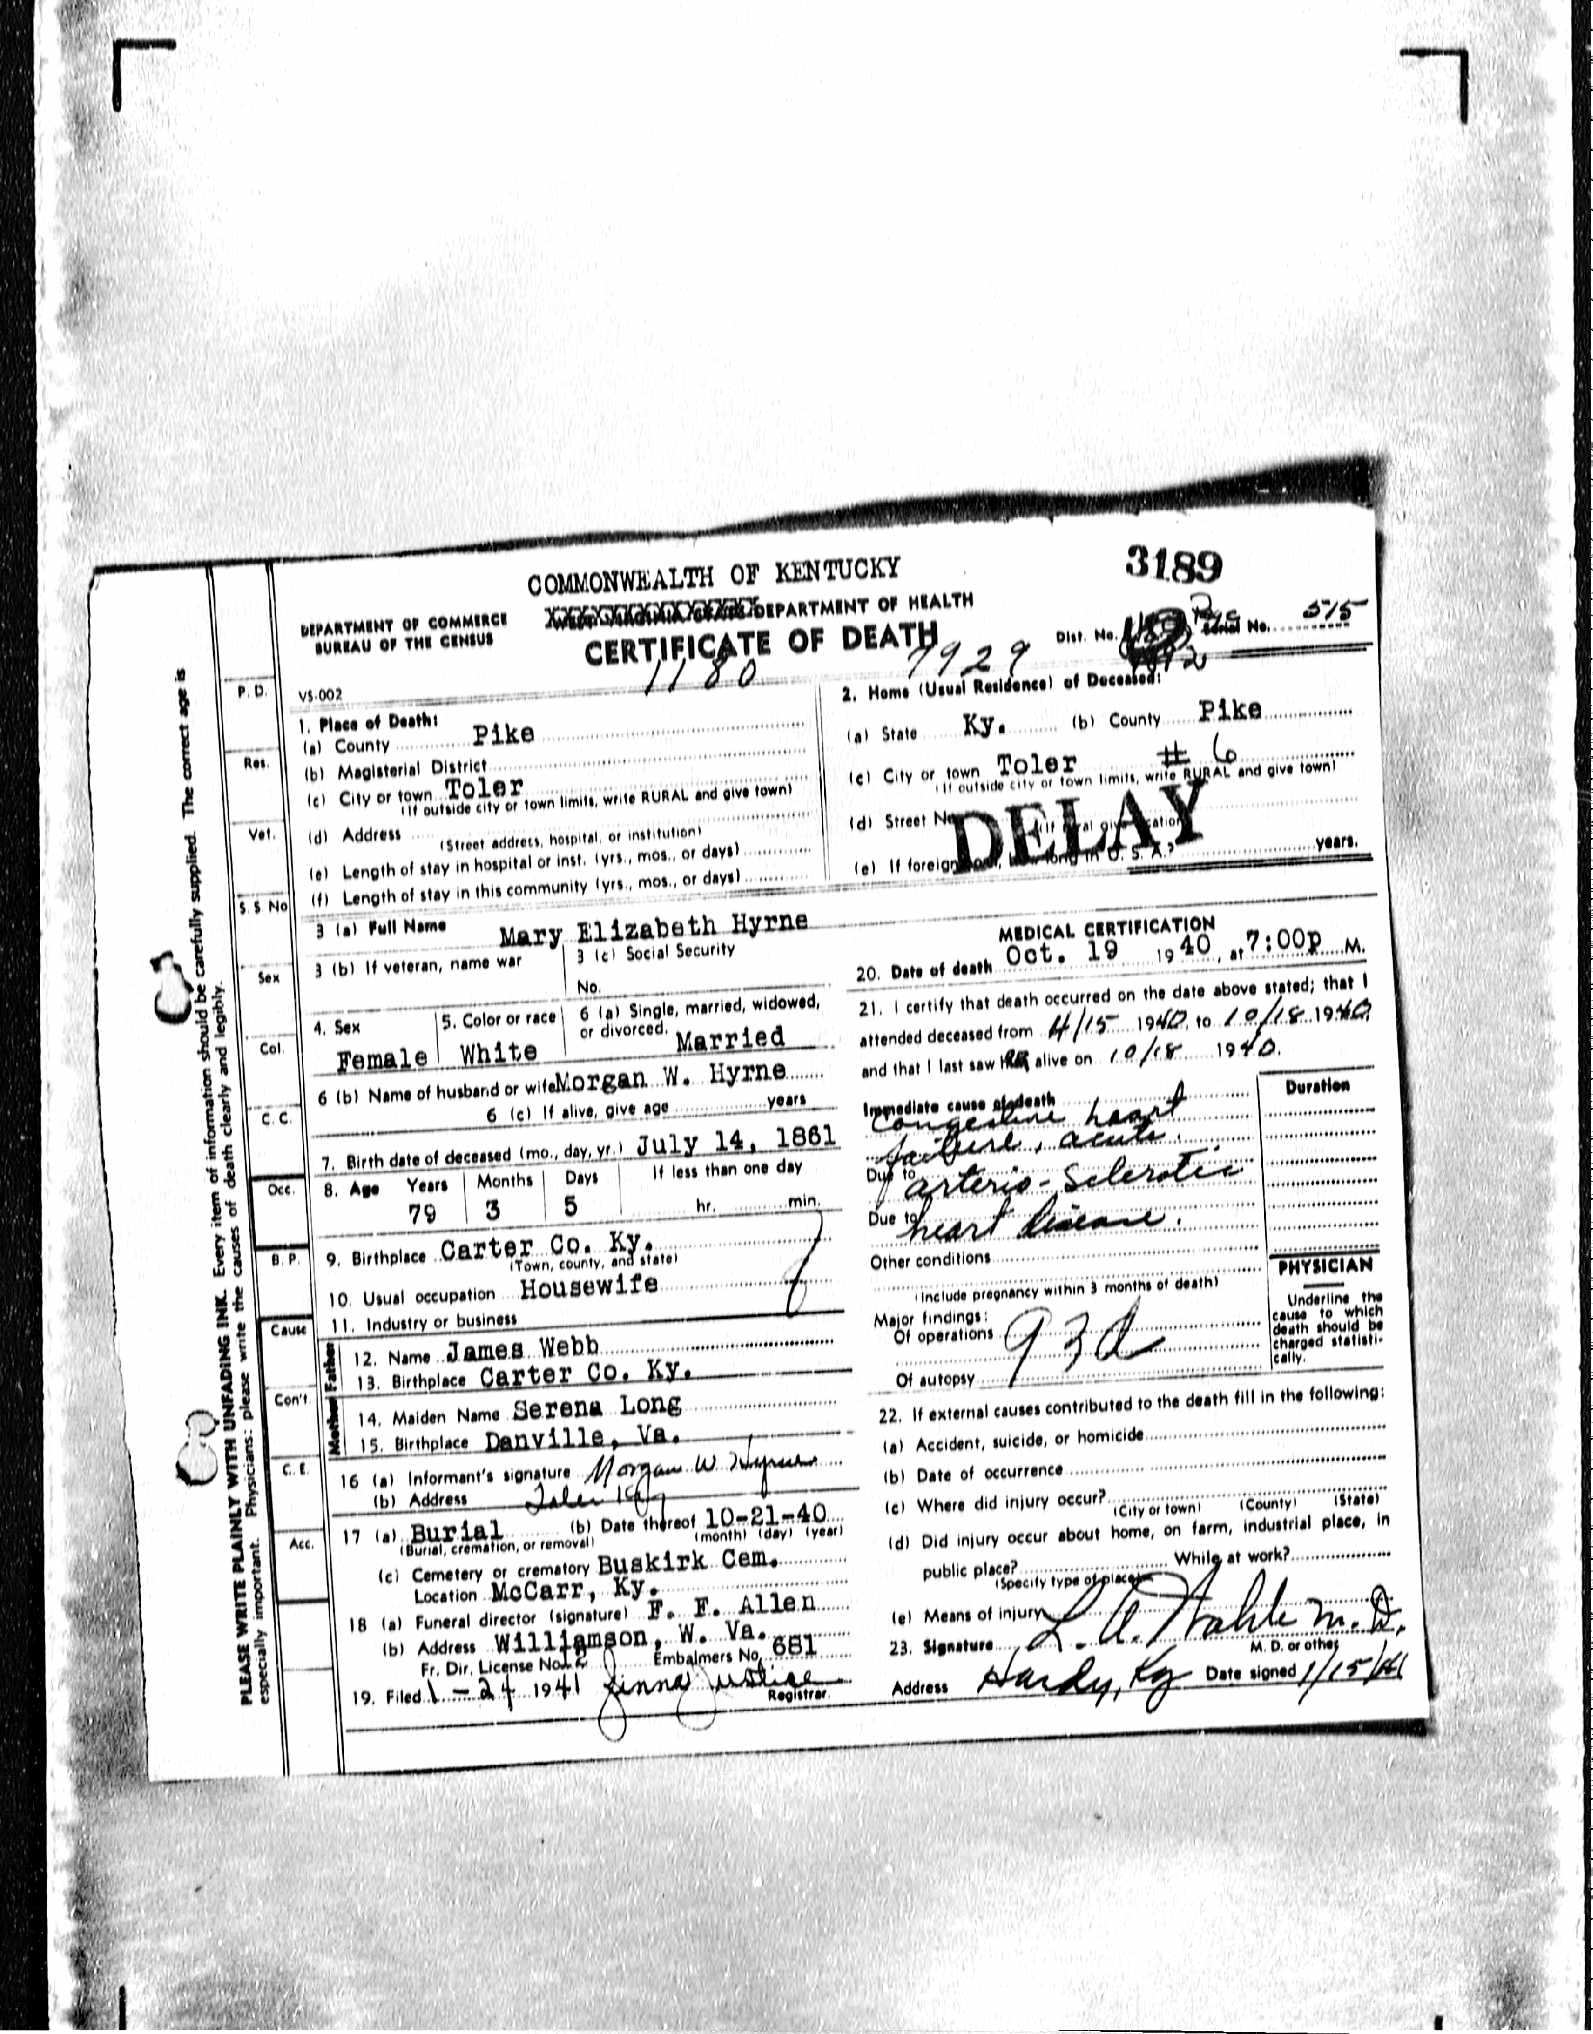 COMMONWEALTH OF KENTUCKY
3189
DEPARTMENT OF COMMERCE
BUREAU OF THE CENSUS
WEST VIRGINIA STATE DEPARTMENT OF HEALTH
CERTIFICATE OF DEATH
Dist. No. Serial No. 515
1180 7929
VS-002
1. Place of Death:
(a) County Pike
(b) Magisterial District
(c) City or town Toler
(If outside city or town limits, write RURAL and give town)
(d) Address
(Street address, hospital, or institution)
(e) Length of stay in hospital or inst. (yrs., mos., or days)
(f) Length of stay in this community (yrs., mos., or days)
2. Home (Usual Residence) of Deceased:
(a) State Ky. (b) County Pike
(c) City or town Toler # 6
(If outside city or town limits, write RURAL and give town)
(d) Street No.
(If rural give location)
DELAY
(e) If foreign born, how long in U. S. A.? years.
3 (a) Full Name Mary Elizabeth Hyrne
3 (b) If veteran, name war
3 (c) Social Security
No.
4. Sex
Female
5. Color or race
White
6 (a) Single, married, widowed,
or divorced.
Married
6 (b) Name of husband or wife Morgan W. Hyrne
6 (c) If alive, give age years
7. Birth date of deceased (mo., day, yr.) July 14, 1861
8. Age Years Months Days If less than one day
79 3 5 hr. min.
9. Birthplace Carter Co. Ky.
(Town, county, and state)
10. Usual occupation Housewife
11. Industry or business
Father
12. Name James Webb
13. Birthplace Carter Co. Ky.
Mother
14. Maiden Name Serena Long
15. Birthplace Danville, Va.
16 (a) Informant's signature Morgan W Hyrne
(b) Address Toler Ky
17 (a) Burial (b) Date thereof 10-21-40
(Burial, cremation, or removal) (month) (day) (year)
(c) Cemetery or crematory Buskirk Cem.
Location McCarr, Ky.
18 (a) Funeral director (signature) F. F. Allen
(b) Address Williamson, W. Va.
Fr. Dir. License No. 12 Embalmers No. 681
19. Filed 1-24 1941 Jinny Justice
Registrar
MEDICAL CERTIFICATION
20. Date of death Oct. 19 1940, at 7:00p M.
21. I certify that death occurred on the date above stated; that I
attended deceased from 4/15 1940, to 10/18 1940,
and that I last saw her alive on 10/18 1940.
Immediate cause of death
Congestive heart
failure, acute.
Due to arterio-sclerotic
Due to heart disease.
Duration
Other conditions
(Include pregnancy within 3 months of death)
Major findings:
Of operations
93d
Of autopsy
PHYSICIAN
Underline the
cause to which
death should be
charged statisti-
cally.
22. If external causes contributed to the death fill in the following:
(a) Accident, suicide, or homicide
(b) Date of occurrence
(c) Where did injury occur?
(City or town) (County) (State)
(d) Did injury occur about home, on farm, industrial place, in
public place? While at work?
(Specify type of place)
(e) Means of injury
23. Signature L. A. Wahle M. D.
M. D. or other
Address Hardy, Ky Date signed 1/15/41
P. D.
Res.
Vet.
S. S No
Sex
Col.
C. C.
Occ.
B. P.
Cause
Con't
C. E.
Acc.
PLEASE WRITE PLAINLY WITH UNFADING INK. Every item of information should be carefully supplied. The correct age is
especially important. Physicians: please write the causes of death clearly and legibly.